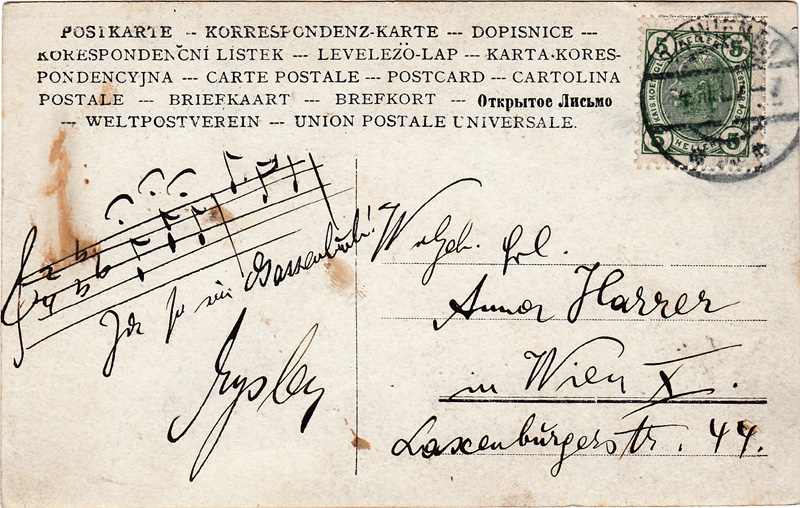 POSTKARTE -- KORRESPONDENZ-KARTE --- DOPISNICE ---
KORESPONDENČNÍ LÍSTEK -- LEVELEZŐ-LAP -- KARTA KORES-
PONDENCYJNA -- CARTE POSTALE -- POSTCARD -- CARTOLINA
POSTALE --- BRIEFKAART --- BREFKORT --- Открытое Лисьмо
-- WELTPOSTVEREIN -- UNION POSTALE UNIVERSALE.
5 5
HELLER
5 5
so ein Gassenbub!
Eysler
Wohlgeb. Frl.
Anna Harrer
in Wien X.
Laxenburgerstr. 44.